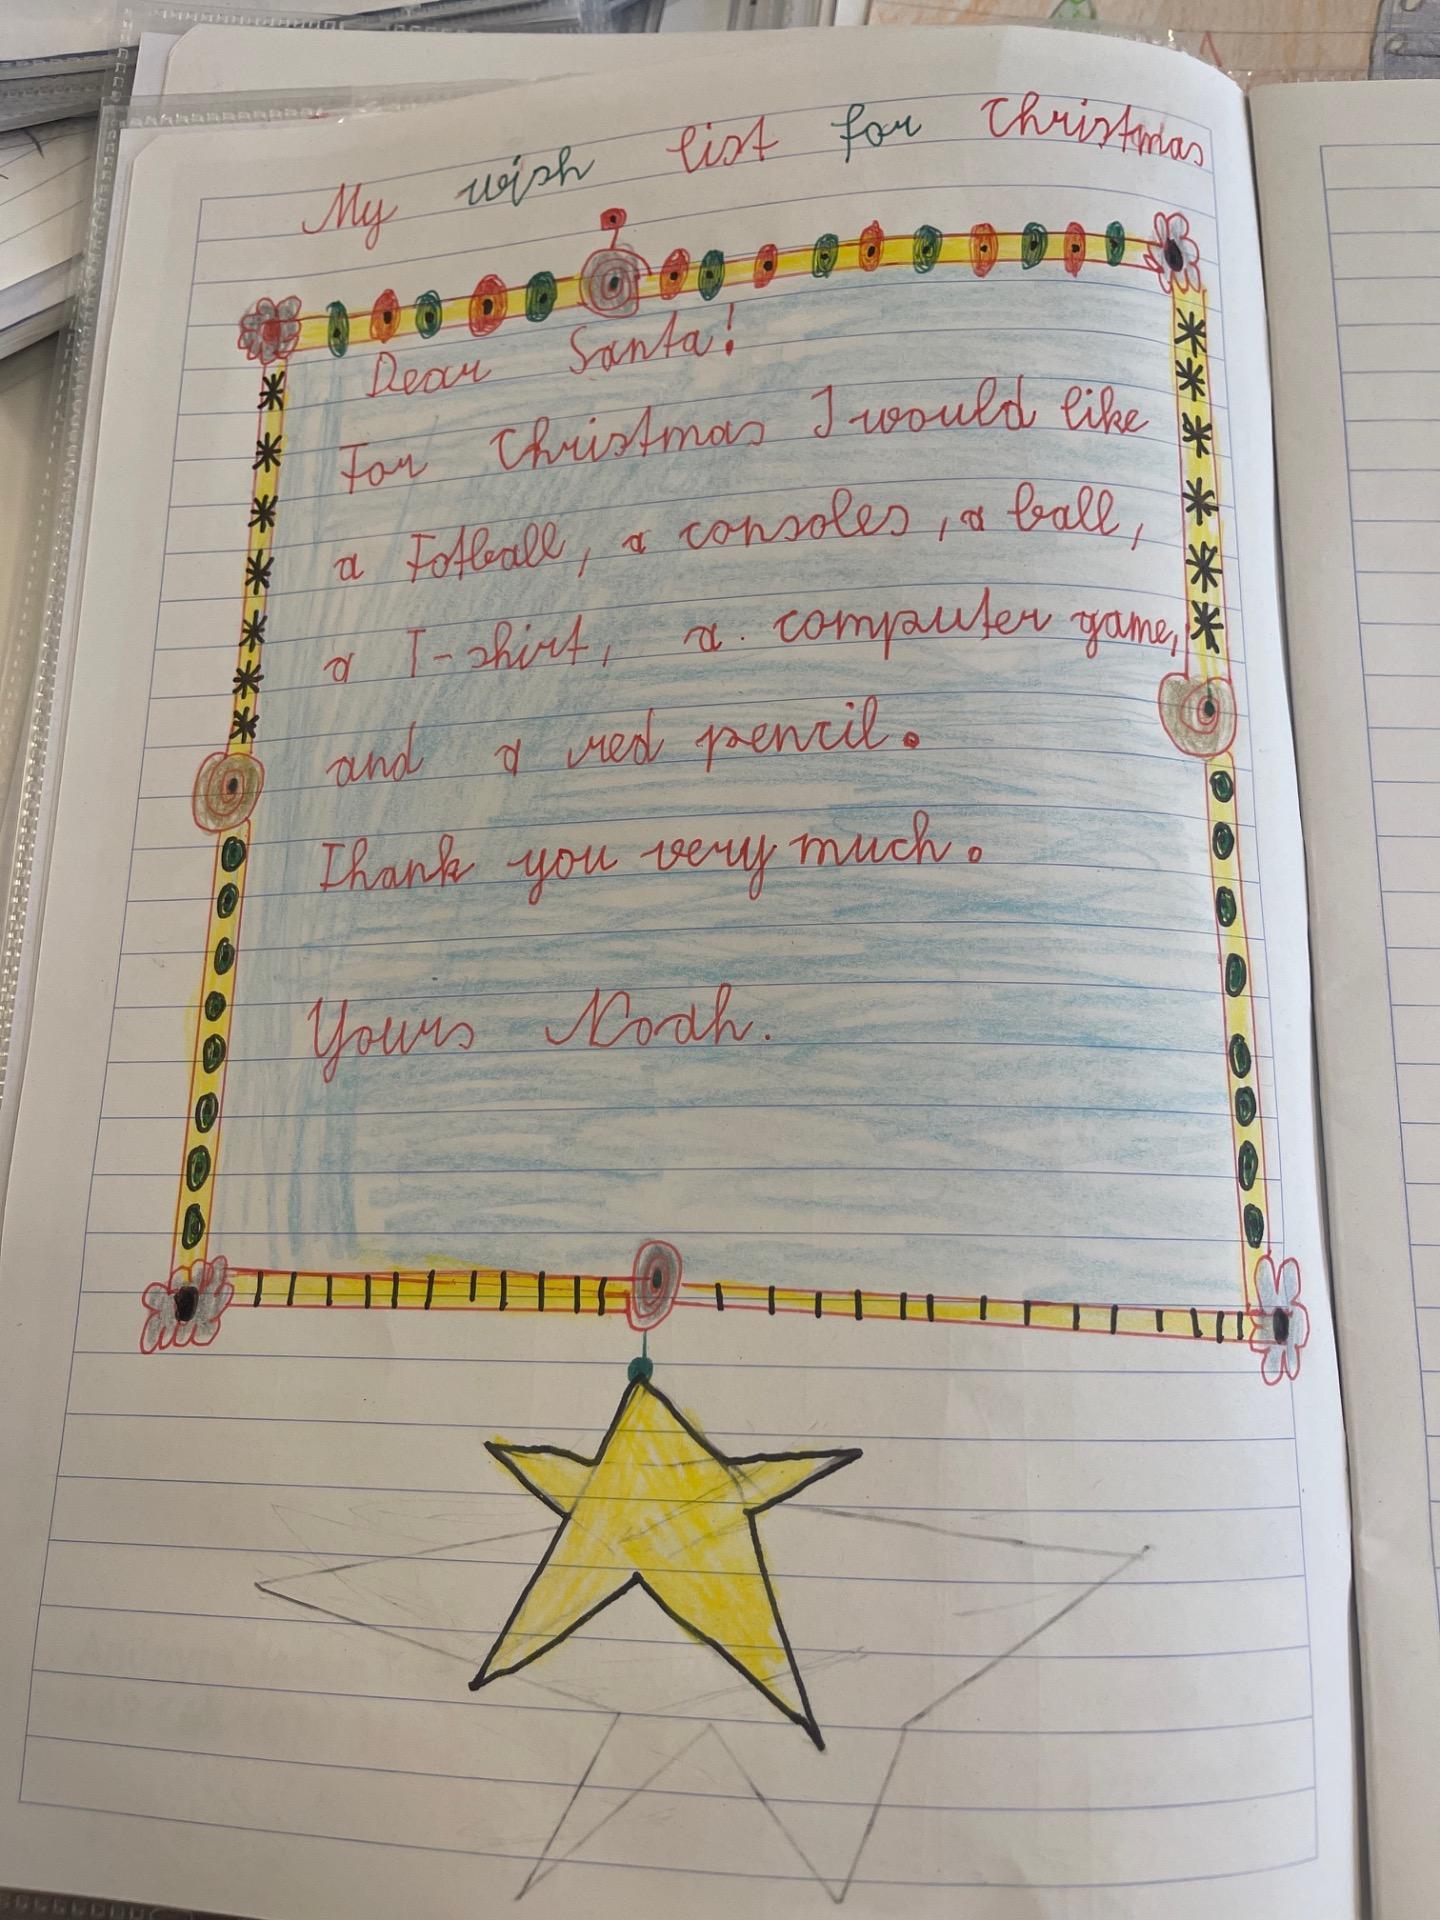 My wish list for Christmas
Dear Santa!
For Christmas I would like
a Fotball, a consoles, a ball,
a T-shirt, a. computer game,
and a red pencil.
Thank you very much.
Yours Noah.